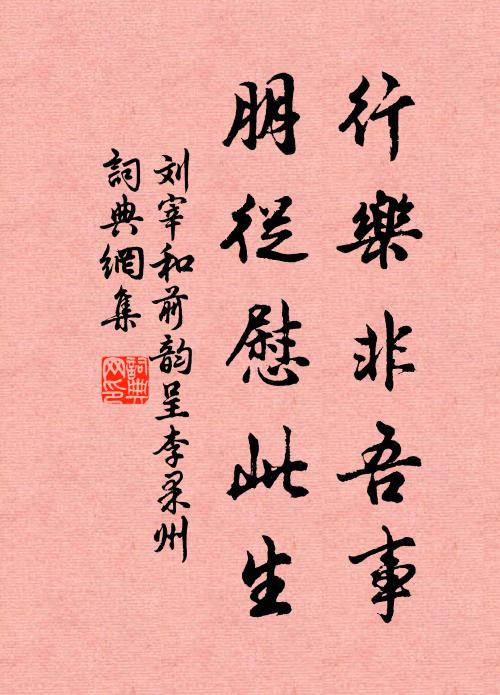 行樂非吾事
朋從慰此生
刘宰和前韵呈李果州
詞典網集
詞典
网印